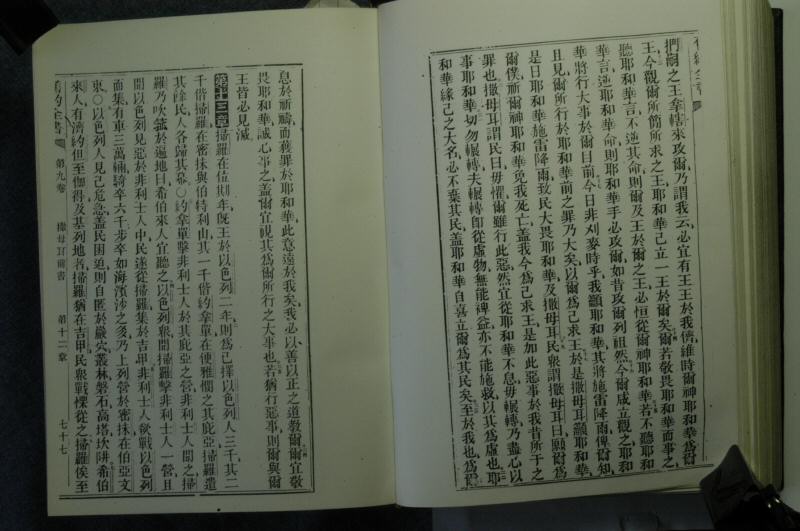 舊約全書
們嗣之王拿轄來攻爾乃謂我云必宜有王王於我儕維時爾神耶和華為爾
王今觀爾所簡所求之王耶和華已立一王於爾矣爾若敬畏耶和華而事之
聽耶和華言不逆其命則爾及王於爾之王必恒從爾神耶和華若不聽耶和
華言逆耶和華命則耶和華手必攻爾如昔攻爾列祖然今爾咸立觀之耶和
華將行大事於爾目前今日非刈麥時乎我籲耶和華其將施雷降雨俾爾知
且見爾所行於耶和華前之罪乃大矣以爾為己求王於是撒母耳籲耶和華
是日耶和華施雷降雨致民大畏耶和華及撒母耳民眾謂撒母耳曰願爾為
爾僕祈爾神耶和華免我死亡蓋我今為己求王是加此惡事於我昔所干之
罪也撒母耳謂民曰毋懼爾雖行此惡然宜從耶和華不息毋輾轉乃盡心以
事耶和華切勿輾轉夫輾轉即從虛物無能裨益亦不能施救以其為虛也耶
和華緣己之大名必不棄其民蓋耶和華自喜立爾為其民矣至於我也為爾
息於祈禱而獲罪於耶和華此意遠於我矣我必以善以正之道教爾爾宜敬
畏耶和華誠心事之蓋爾宜視其為爾所行之大事也若猶行惡事則爾與爾
王皆必見滅
第十三章掃羅在位朞年既王於以色列二年則為己擇以色列人三千其二
千偕掃羅在密抹與伯特利山其一千偕約拿單在便雅憫之其庇亞掃羅遣
其餘民人各歸其幕〇約拿單擊非利士人於其庇亞之營非利士人聞之掃
羅乃吹號於遍地曰希伯來人宜聽之以色列眾聞掃羅擊非利士人一營且
聞以色列見惡於非利士人中民遂從掃羅集於吉甲非利士人欲戰以色列
而集有車三萬輛騎卒六千步卒如海濱沙之多乃上列營於密抹在伯亞文
東〇以色列人見己危急蓋民困迫則自匿於巖穴叢林磐石高塔坎阱希伯
來人有濟約但至伽得及基列地者掃羅猶在吉甲民眾戰慄從之掃羅俟至
舊約全書 第九卷 撒母耳前書 第十三章 七十七